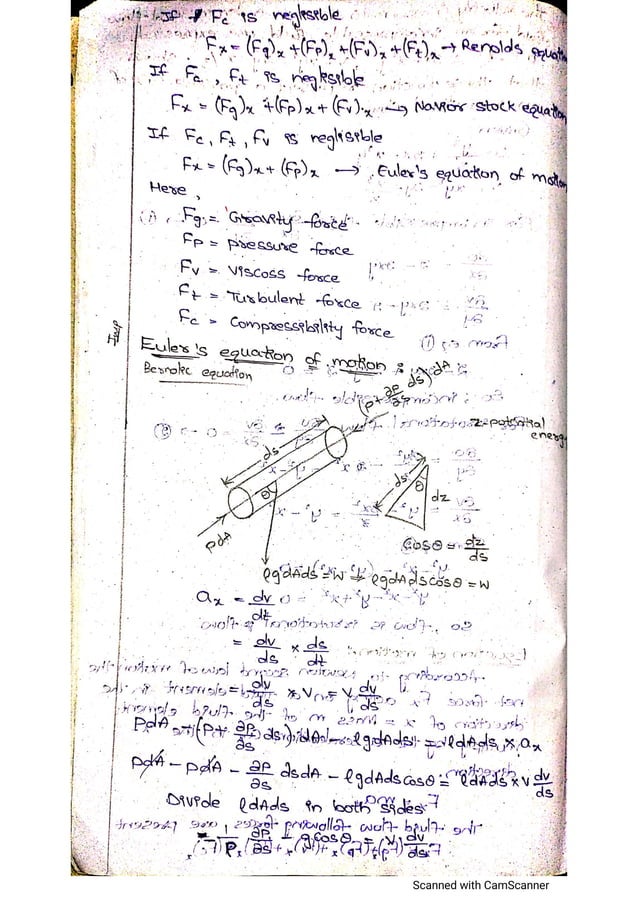 If Fc is neglesible
Fx = (Fg)x + (Fp)x + (Fv)x + (Ft)x → Renolds equation
If Fc, Ft is neglesible
Fx = (Fg)x + (Fp)x + (Fv)x → Navior stock equation
If Fc, Ft, Fv is neglisible
Fx = (Fg)x + (Fp)x → Euler's equation of motion
Here,
Fg = Gravity force
Fp = pressure force
Fv = Viscoss force
Ft = Turbulent force
Fc = Compressibility force
Imp
Euler's equation of motion :
Bernolic equation
(P + ∂P/∂s ds) dA
z = potential energy
ds
θ
PdA
ds
θ
dz
Cosθ = dz/ds
ρgdAds = W ρgdAdscosθ = W
ax = dv/dt
= dv/ds × ds/dt
= dv/ds × V = V dv/ds
PdA - (P + ∂P/∂s ds) dA - ρgdAds = ρdAds × ax
PdA - PdA - ∂P/∂s dsdA - ρgdAdscosθ = ρdAds × V dv/ds
Divide ρdAds in both sides
Scanned with CamScanner